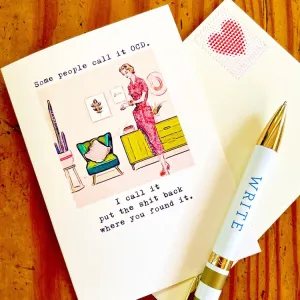 Some people call it OCD.
I call it
put the shit back
where you found it.
WRITE